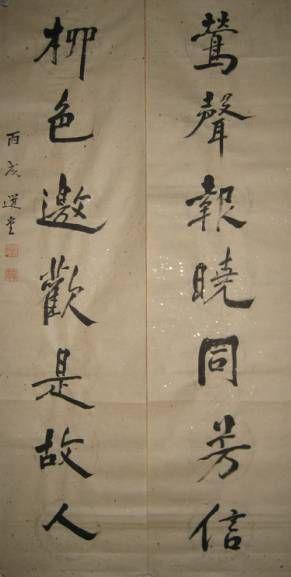 鶯聲報曉同芳信
柳色邀歡是故人
選堂